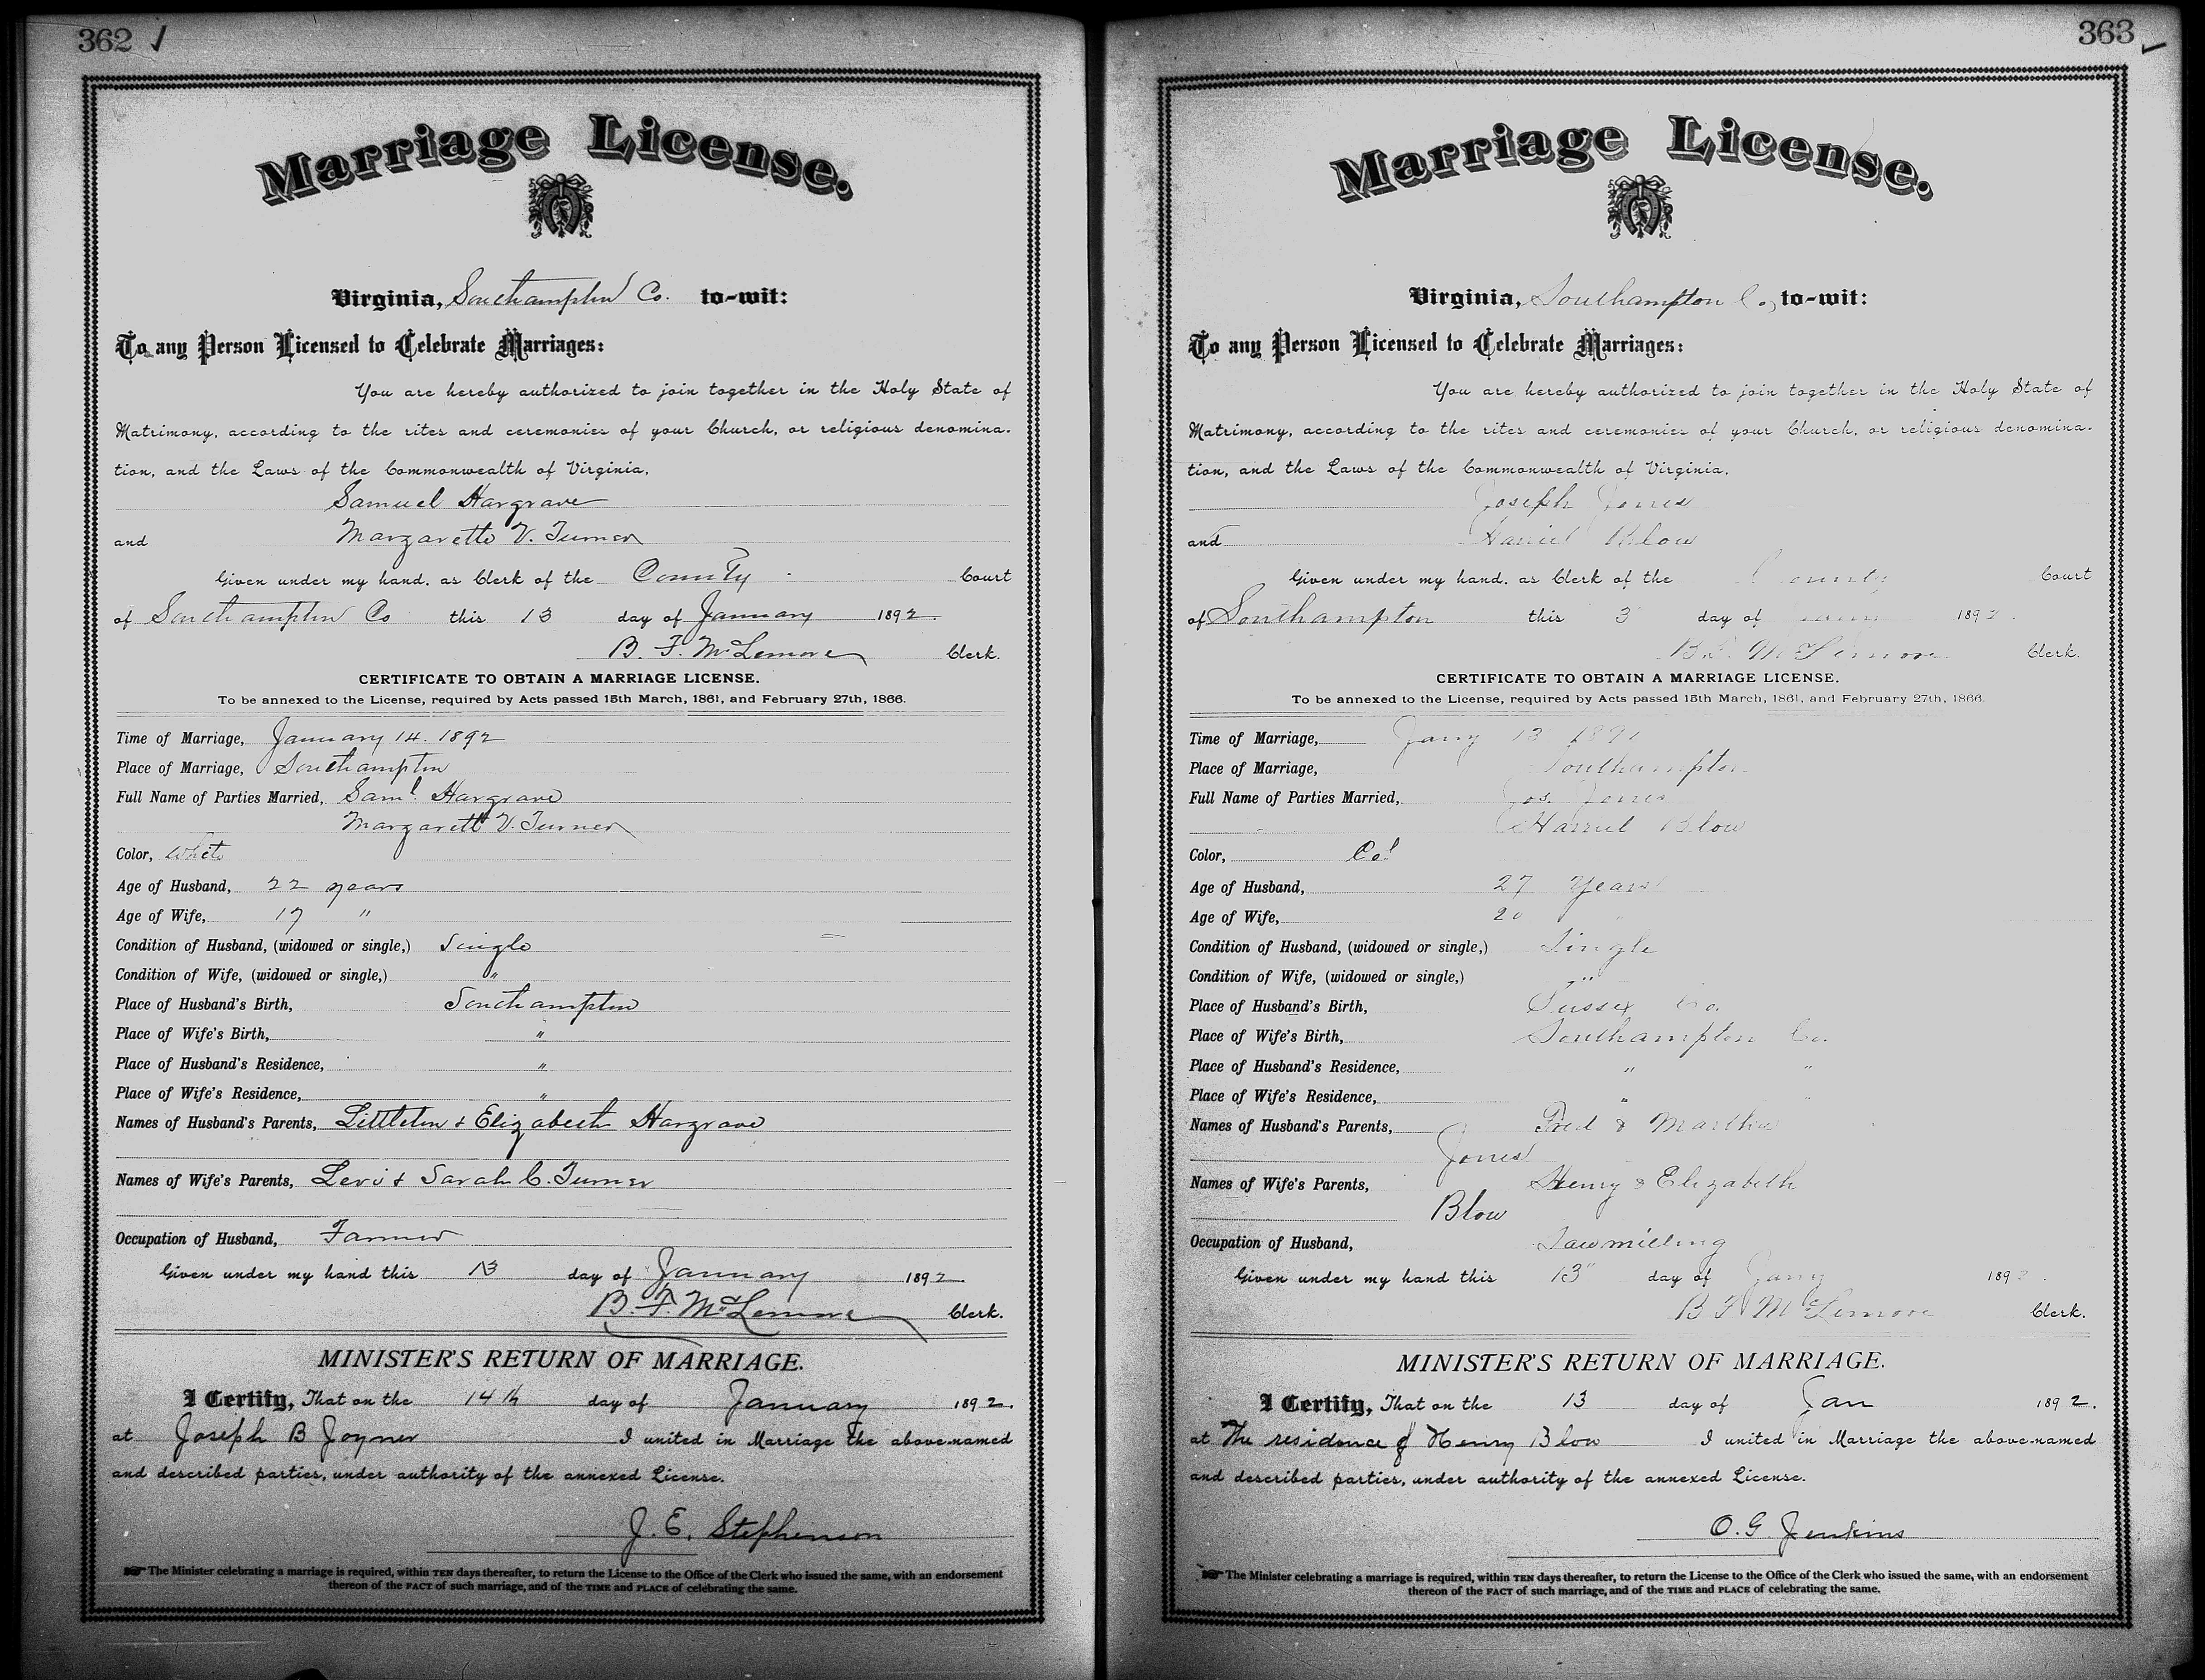 362
Marriage License.
Virginia, Southampton Co. to-wit:
To any Person Licensed to Celebrate Marriages:
You are hereby authorized to join together in the Holy State of
Matrimony, according to the rites and ceremonies of your Church, or religious denomina-
tion, and the Laws of the Commonwealth of Virginia,
Samuel Hargrave
and Margarette V. Turner
Given under my hand, as Clerk of the County Court
of Southampton Co this 13 day of January 1892.
B. F. McLemore Clerk.
CERTIFICATE TO OBTAIN A MARRIAGE LICENSE.
To be annexed to the License, required by Acts passed 15th March, 1861, and February 27th, 1866.
Time of Marriage, January 14. 1892
Place of Marriage, Southampton
Full Name of Parties Married, Saml. Hargrave
Margarett V. Turner
Color, White
Age of Husband, 22 years
Age of Wife, 17 "
Condition of Husband, (widowed or single,) Single
Condition of Wife, (widowed or single,) "
Place of Husband's Birth, Southampton
Place of Wife's Birth, "
Place of Husband's Residence, "
Place of Wife's Residence, "
Names of Husband's Parents, Littleton & Elizabeth Hargrave
Names of Wife's Parents, Levi & Sarah C. Turner
Occupation of Husband, Farmer
Given under my hand this 13 day of January 1892.
B. F. McLemore Clerk.
MINISTER'S RETURN OF MARRIAGE.
I Certify, That on the 14th day of January 1892.
at Joseph B Joyner I united in Marriage the above-named
and described parties, under authority of the annexed License.
J. E. Stephenson
The Minister celebrating a marriage is required, within TEN days thereafter, to return the License to the Office of the Clerk who issued the same, with an endorsement
thereon of the FACT of such marriage, and of the TIME and PLACE of celebrating the same.
363
Marriage License.
Virginia, Southampton Co, to-wit:
To any Person Licensed to Celebrate Marriages:
You are hereby authorized to join together in the Holy State of
Matrimony, according to the rites and ceremonies of your Church, or religious denomina-
tion, and the Laws of the Commonwealth of Virginia,
Joseph Jones
and Harriet Blow
Given under my hand, as Clerk of the County Court
of Southampton this 3 day of 189
B. F. McLemore Clerk.
CERTIFICATE TO OBTAIN A MARRIAGE LICENSE.
To be annexed to the License, required by Acts passed 15th March, 1861, and February 27th, 1866.
Time of Marriage, Jany 13
Place of Marriage, Southampton
Full Name of Parties Married, Jos. Jones
Harriet Blow
Color, Col
Age of Husband, 27 Years
Age of Wife, 20 "
Condition of Husband, (widowed or single,) Single
Condition of Wife, (widowed or single,) "
Place of Husband's Birth, Sussex Co.
Place of Wife's Birth, Southampton Co.
Place of Husband's Residence, " "
Place of Wife's Residence, " "
Names of Husband's Parents, Fred & Martha
Jones
Names of Wife's Parents, Henry & Elizabeth
Blow
Occupation of Husband, Sawmilling
Given under my hand this 13" day of Jany 189
B F McLemore Clerk.
MINISTER'S RETURN OF MARRIAGE.
I Certify, That on the 13 day of Jan 1892.
at The residence of Henry Blow I united in Marriage the above-named
and described parties, under authority of the annexed License.
O. G. Jenkins
The Minister celebrating a marriage is required, within TEN days thereafter, to return the License to the Office of the Clerk who issued the same, with an endorsement
thereon of the FACT of such marriage, and of the TIME and PLACE of celebrating the same.